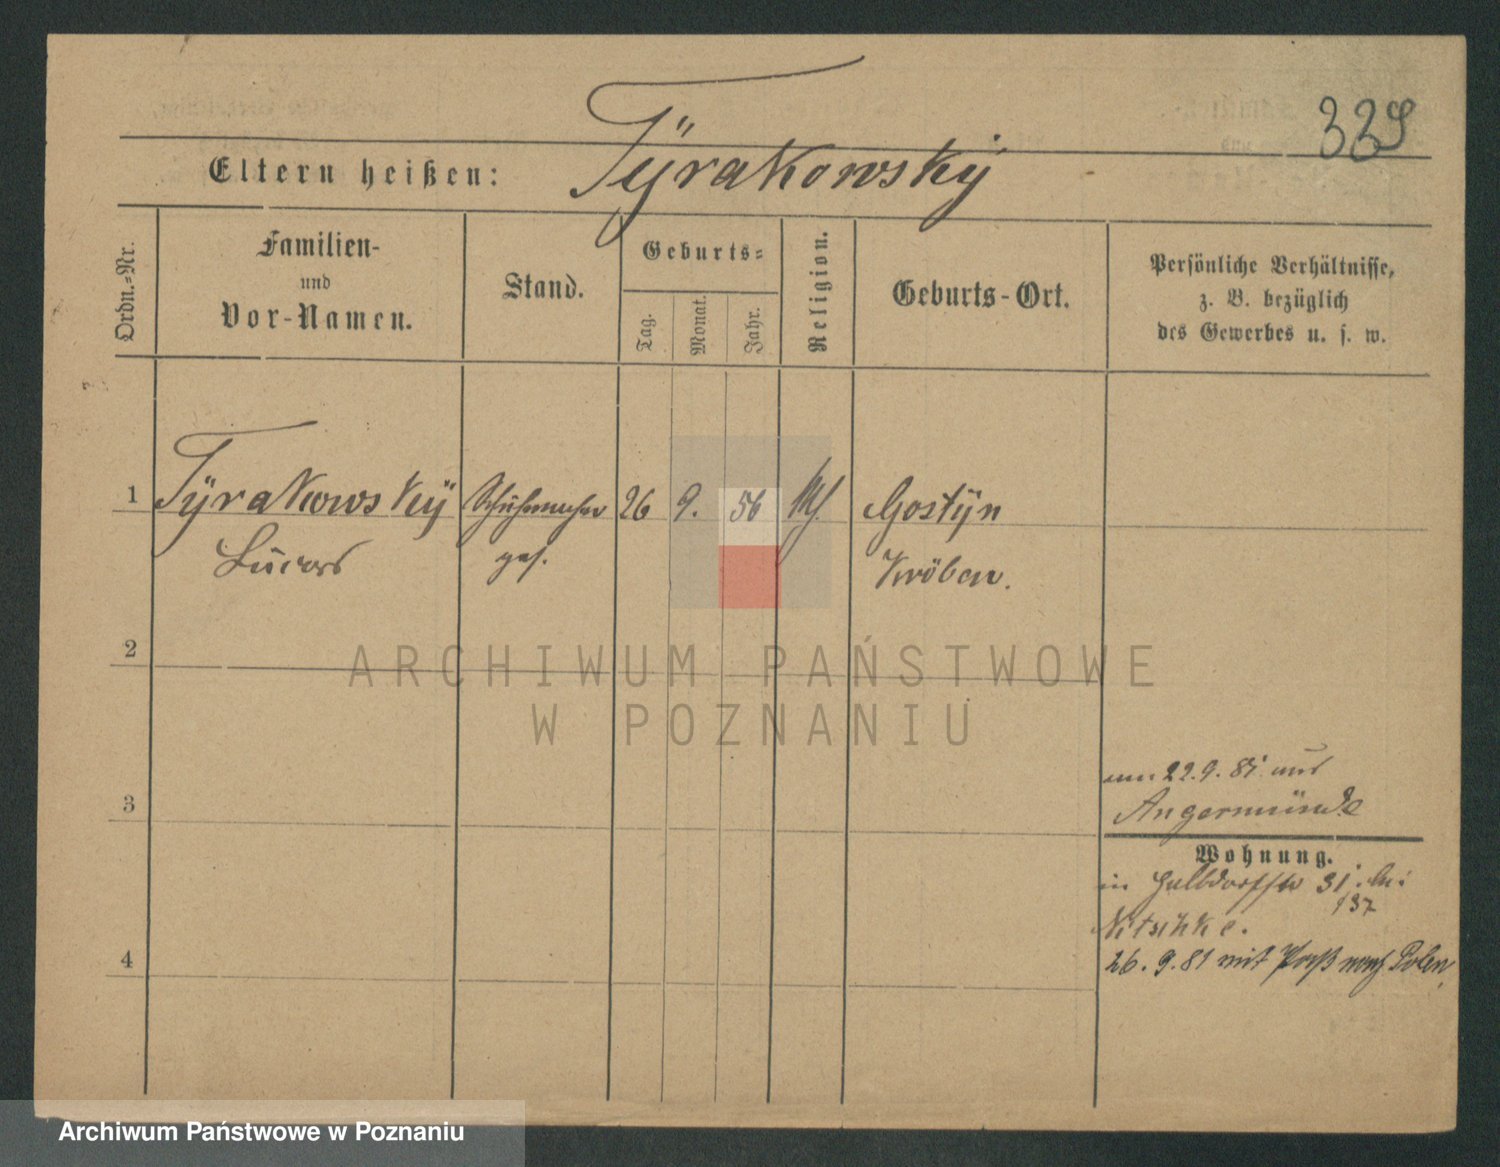 329
Eltern heißen: Tÿrakowskÿ
Ordn.-Nr.
Familien-
und
Vor-Namen.
Stand.
Geburts-
Tag.
Monat.
Jahr.
Religion.
Geburts-Ort.
Persönliche Verhältnisse,
z. B. bezüglich
des Gewerbes u. s. w.
1 Tÿrakowskÿ Schuhmacher 26 9. 56 Gostÿn
Lucas ges. Kröben.
2
ARCHIWUM PAŃSTWOWE
W POZNANIU
3
22.9.81 aus
Angermünde
Wohnung.
in Halbdorfstr 31. bei
137
Nitschke.
4
26.9.81 mit Paß nach Polen
Archiwum Państwowe w Poznaniu